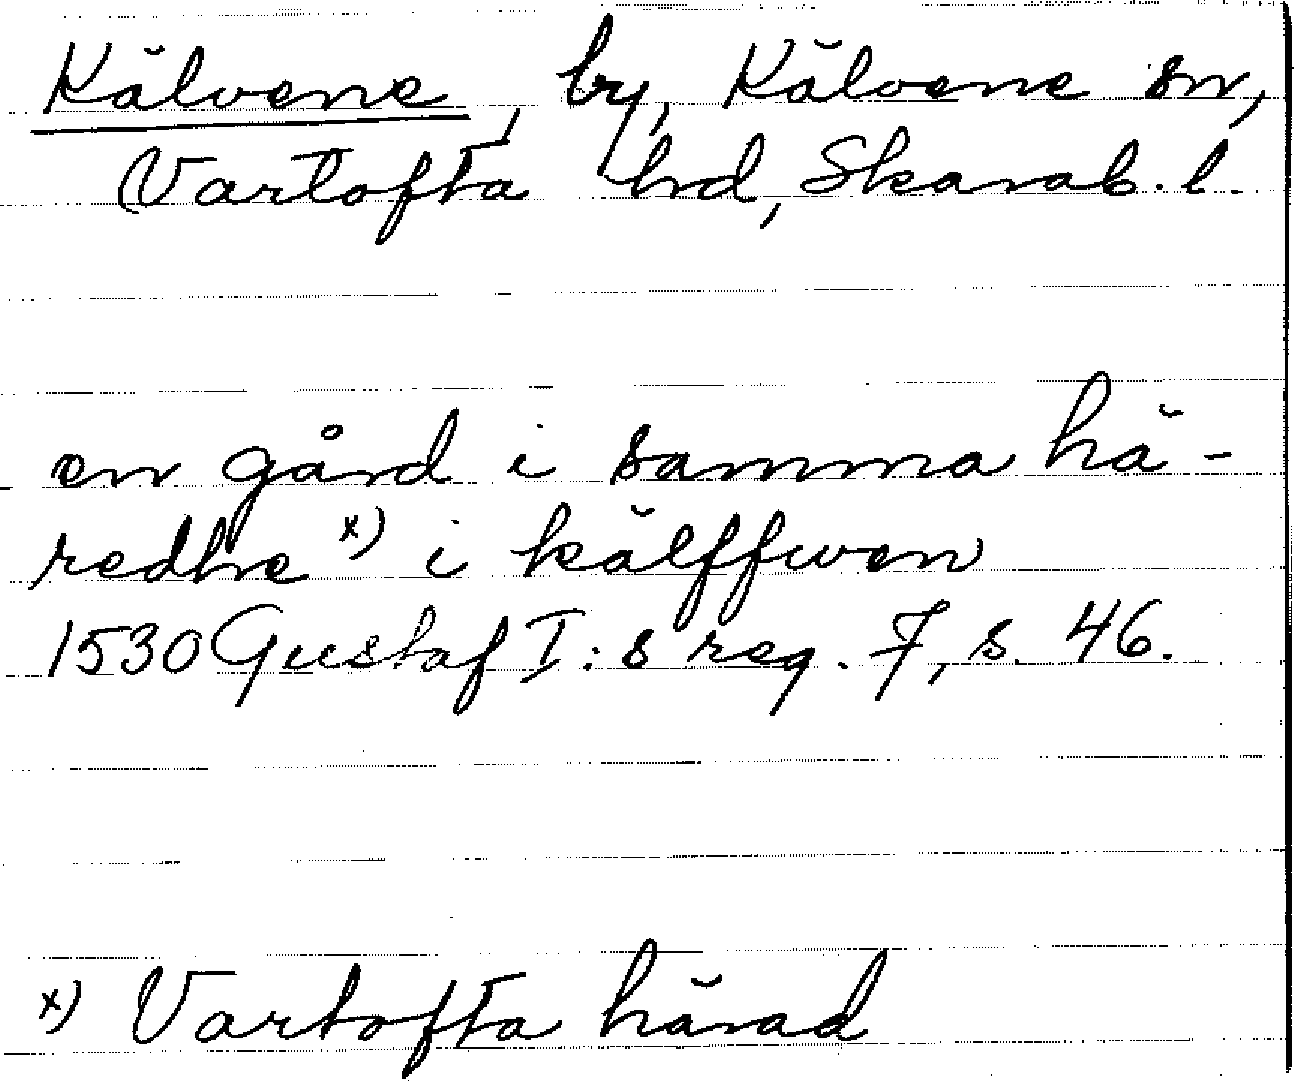 Kälvene, by, Kälvene sn,
Vartofta hd, Skarab. l.
en gård i samma hä-
redhe x) i kälffwen
1530 Gustaf I:s reg. 7, s. 46.
x) Vartofta härad